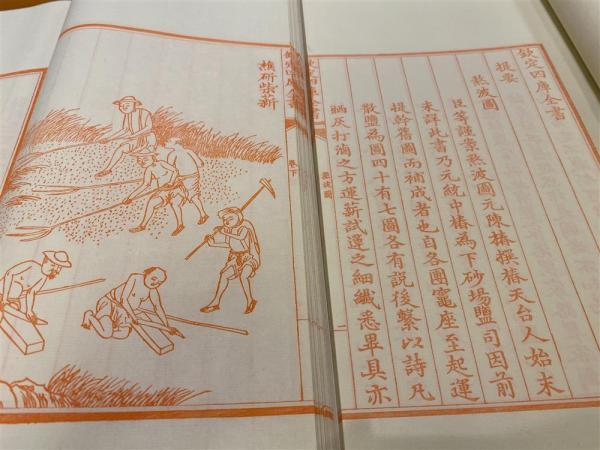 欽定四庫全書
提要
熬波圖
臣等謹案熬波圖元陳椿撰椿天台人始末
未詳此書乃元統中椿為下砂場鹽司因前
提幹舊圖而補成者也自各團竈座至起運
散鹽為圖四十有七圖各有說後繫以詩凡
晒灰打滷之方運薪試運之細纖悉畢具亦
欽定四庫全書
熬波圖
欽定四庫全書
卷下
樵斫柴薪